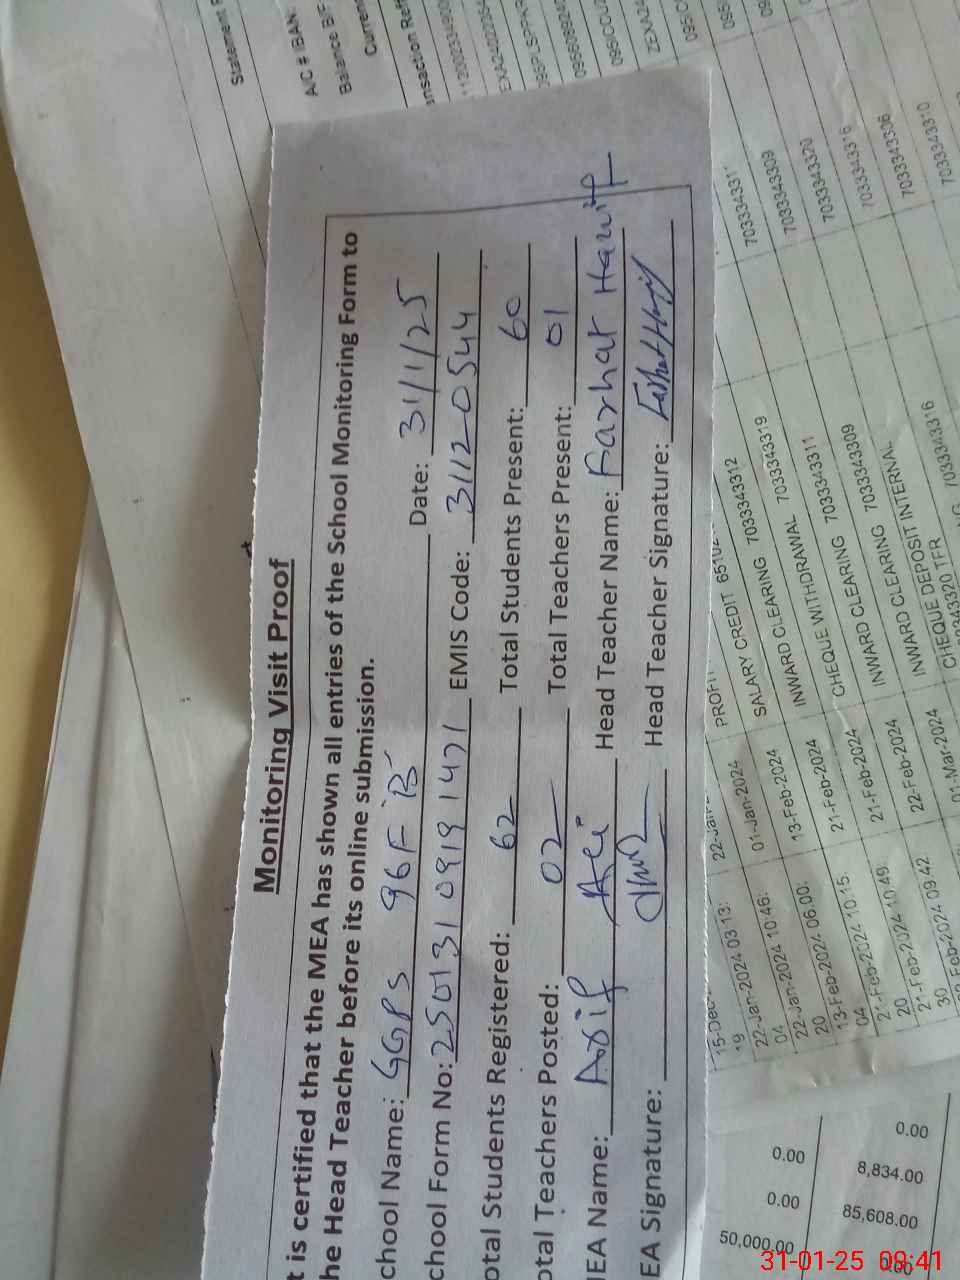 Monitoring Visit Proof
t is certified that the MEA has shown all entries of the School Monitoring Form to
he Head Teacher before its online submission.
chool Name: GGPS 96F B Date: 31/1/25
chool Form No: 250131 0919 1471 EMIS Code: 31120544
otal Students Registered: 62 Total Students Present: 60
otal Teachers Posted: 02 Total Teachers Present: 01
IEA Name: Asif Ali Head Teacher Name: Farhat Hanif
EA Signature: Head Teacher Signature: Farhat Hanif
Statement
A/C # IBAN:
Balance B/F
Curren
nsaction Ref#
15-Dec- 22-Jan- PROFIT
19
22-Jan-2024 03:13: 01-Jan-2024 SALARY CREDIT 7033343312
04
22-Jan-2024 10:46: 13-Feb-2024 INWARD CLEARING 7033343319 7033343309
20
13-Feb-2024 06:00: 21-Feb-2024 CHEQUE WITHDRAWAL 7033343311 7033343320
04
21-Feb-2024 10:15: 21-Feb-2024 INWARD CLEARING 7033343309 7033343316
20
21-Feb-2024 10:49: 22-Feb-2024 INWARD CLEARING
30
Feb-2024 09:42: 01-Mar-2024 CHEQUE DEPOSIT INTERNAL 7033343306
TFR 7033343316 7033343310
50,000.00 0.00 0.00
85,608.00 8,834.00 0.00
0.00
31-01-25 09:41